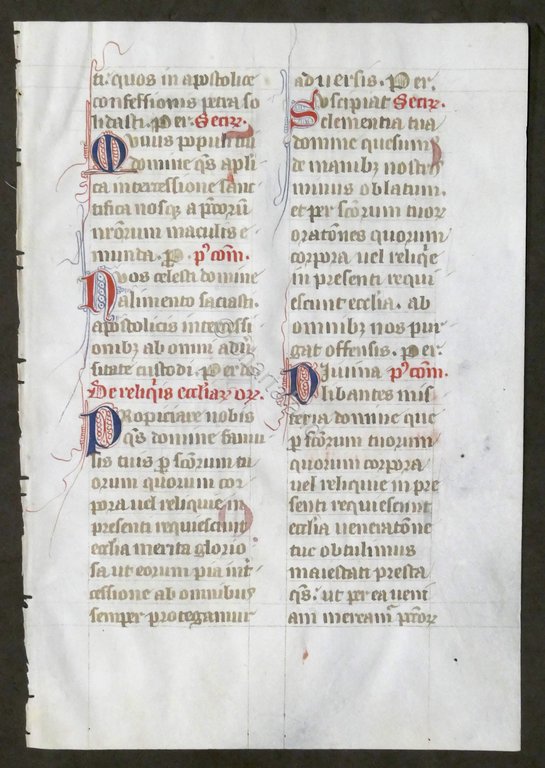 ti: quos in apostolice
confessionis petra so
lidasti. Per. Secr̄.
Munus populi tui
domine q̄s apłi
ca intercessione sanc
tifica nosq̨ a p̄c̄orū
nr̄orum maculis e
munda. p. p' com̄.
Quos celesti domine
alimento saciasti.
apostolicis intercessi
onibꝫ ab omni adū
sitate custodi. Per do
De reliq'is eccliaꝝ or̄.
PRopiciare nobis
q̄s domine famu
lis tuis ꝑ sc̄orum tu
orum quorum cor
pora uel reliquie in
presenti requiescunt
eccl̄ia merita glorio
sa ut eorum pia int̄
cessione ab omnibus
semper protegamur
aduersis. Per.
Suscipiat Secr̄.
clementia tua
domine quesum'
de manibꝫ nostro
minus oblatum.
et per sc̄orum tuoꝝ
orationes quorum
corpora uel reliq'ie
in presenti requi
escunt ecclīa. ab
omnibꝫ nos pur
gat offensis. Per.
DIuina p' com̄.
libantes mis
teria domine que
ꝑ sc̄orum tuorum
quorum corpora
uel reliquie in pre
senti requiescunt
eccl̄ia ueneratōne
tue obtulimus
maiestati presta
q̄s. ut per ea ueni
am meream' p̄c̄oꝝ